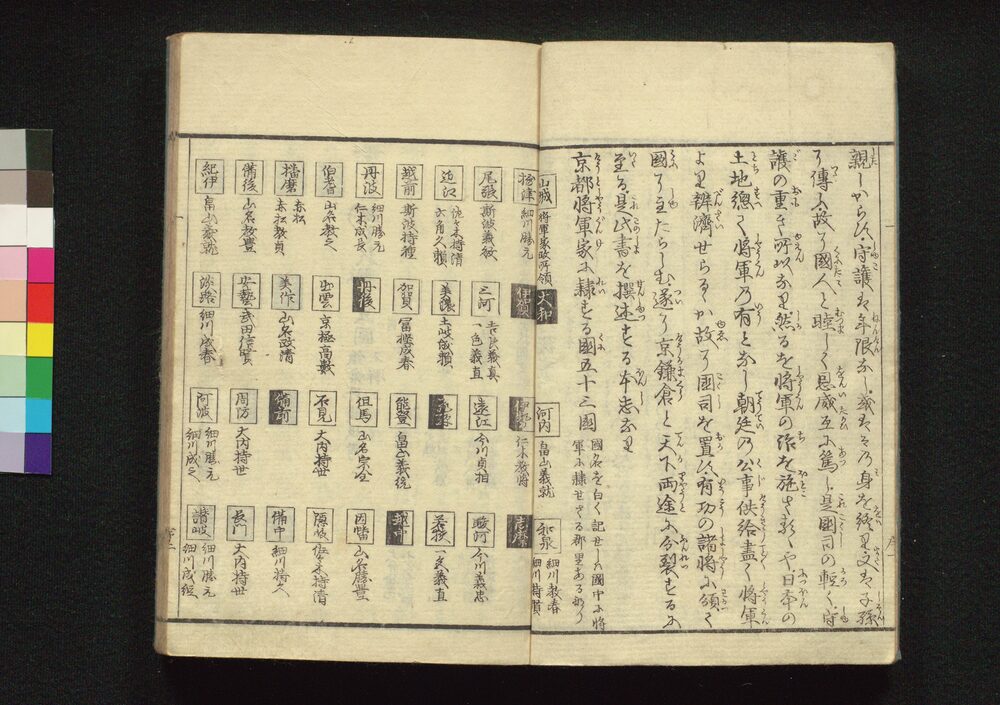 親しからば守護は年限なし或はその身を終り又は子孫
に傳ふ故に國人と睦しく恩威互に篤し是國司の輕く守
護の重き所以なり然るを將軍の治を施さるゝや日本の
土地總て將軍の有となし朝廷の公事供給盡く將軍
より辨濟せらるゝか故に國司を置ず有功の諸將に頒て
國の主たらしむ遂に京鎌倉と天下両途に分裂するに
至る是此書を撰述する本志なり
京都將軍家に隷する國五十三國
國名を白く記せしハ國中に將
軍に隷せざる郡里ある
山城 將軍家政所領 大和 河内 畠山義就 和泉 細川教春 細川持賢
摂津 細川勝元 伊賀 伊勢 仁木教將 志摩
尾張 斯波義敏 三河 吉良義真 一色義直 遠江 今川貞相 駿河 今川義忠
近江 佐々木持清 六角久頼 美濃 土岐成頼 若狭 一色義直
越前 斯波持種 加賀 冨樫成春 能登 畠山義統 越中
丹波 細川勝元 仁木成長 丹後 但馬 山名宗全 因幡 山名勝豊
伯耆 山名教之 出雲 京極高數 石見 大内持世 隠岐 佐々木持清
播磨 赤松 赤松教貞 美作 山名政清 備前 備中 細川持久
備後 山名教豊 安藝 武田信賢 周防 大内持世 長門 大内持世
紀伊 畠山義就 淡路 細川成春 阿波 細川勝元 細川成之 讃岐 細川勝元 細川成經